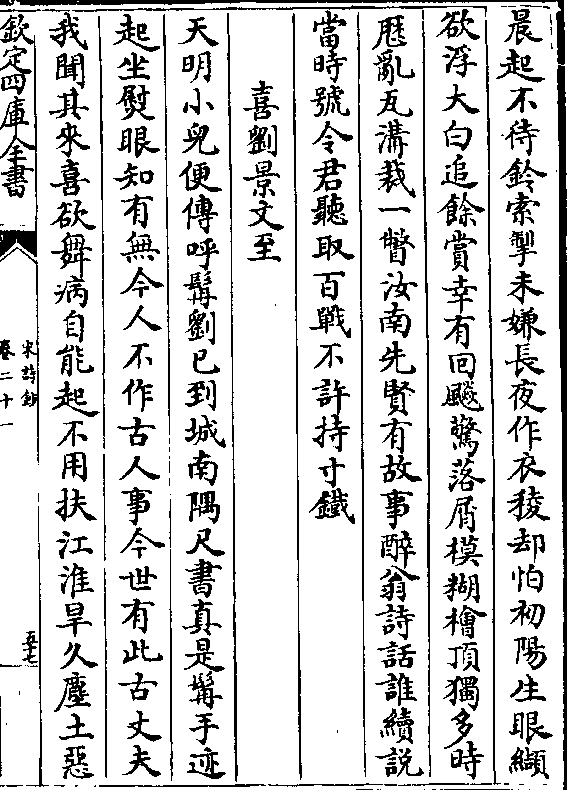 晨起不待鈴索掣未嫌長夜作衣稜却怕初陽生眼纈
欲浮大白追餘賞幸有回飈驚落屑模糊檜頂獨多時
厯亂瓦溝裁一瞥汝南先賢有故事醉翁詩話誰續説
當時號令君聽取百戰不許持寸鐵
喜劉景文至
天明小兒便傳呼髯劉已到城南隅尺書真是髯手迹
起坐熨眼知有無今人不作古人事今世有此古丈夫
我聞其來喜欲舞病自能起不用扶江淮旱久塵土惡
欽定四庫全書
宋詩鈔
卷二十一
五十七